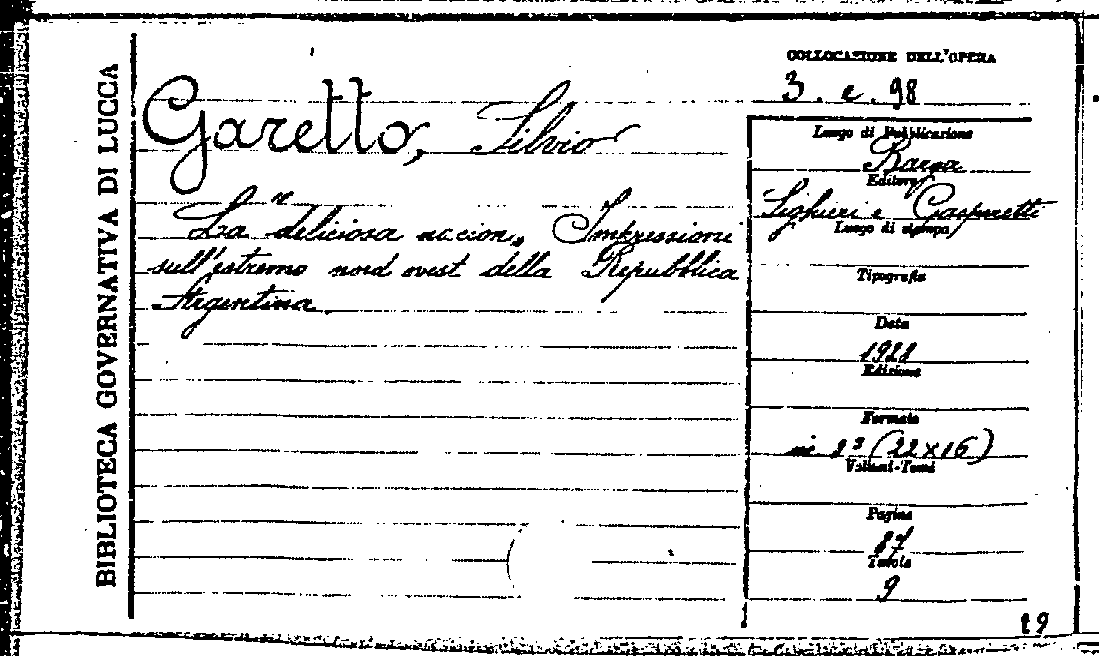 BIBLIOTECA GOVERNATIVA DI LUCCA
Garetto, Silvio
La deliciosa naccion. Impressioni
sull'estremo nord ovest della Repubblica
Argentina.
COLLOCAZIONE DELL'OPERA
3. e. 98
Luogo di Pubblicazione
Barga
Editore
Lighieri e Gasperetti
Luogo di stampa
Tipografia
Data
1921
Edizione
Formato
in 8° (22x16)
Volumi-Tomi
Pagine
87
Tavole
9
19